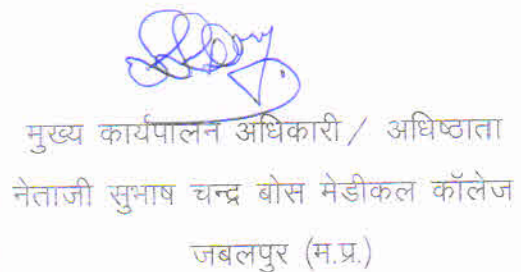 मुख्य कार्यपालन अधिकारी / अधिष्ठाता
नेताजी सुभाष चन्द्र बोस मेडीकल कॉलेज
जबलपुर (म.प्र.)